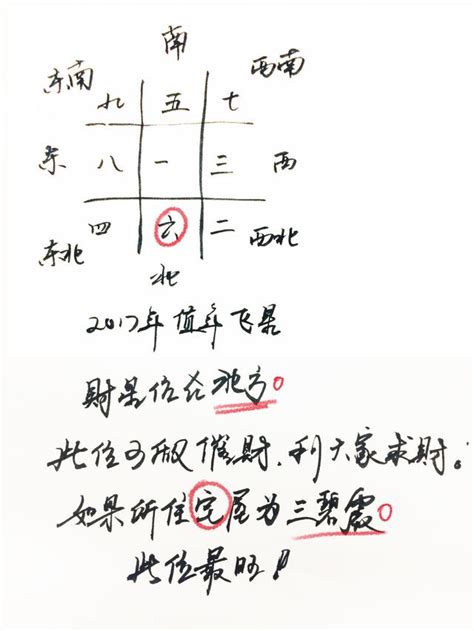 南
东南 西南
九 五 七
东 八 一 三 西
四 六 二
东北 西北
北
2017年值年飞星
财星位在北方。
此位可做催财、利大家求财。
如果所住宅屋为三碧震。
此位最旺！